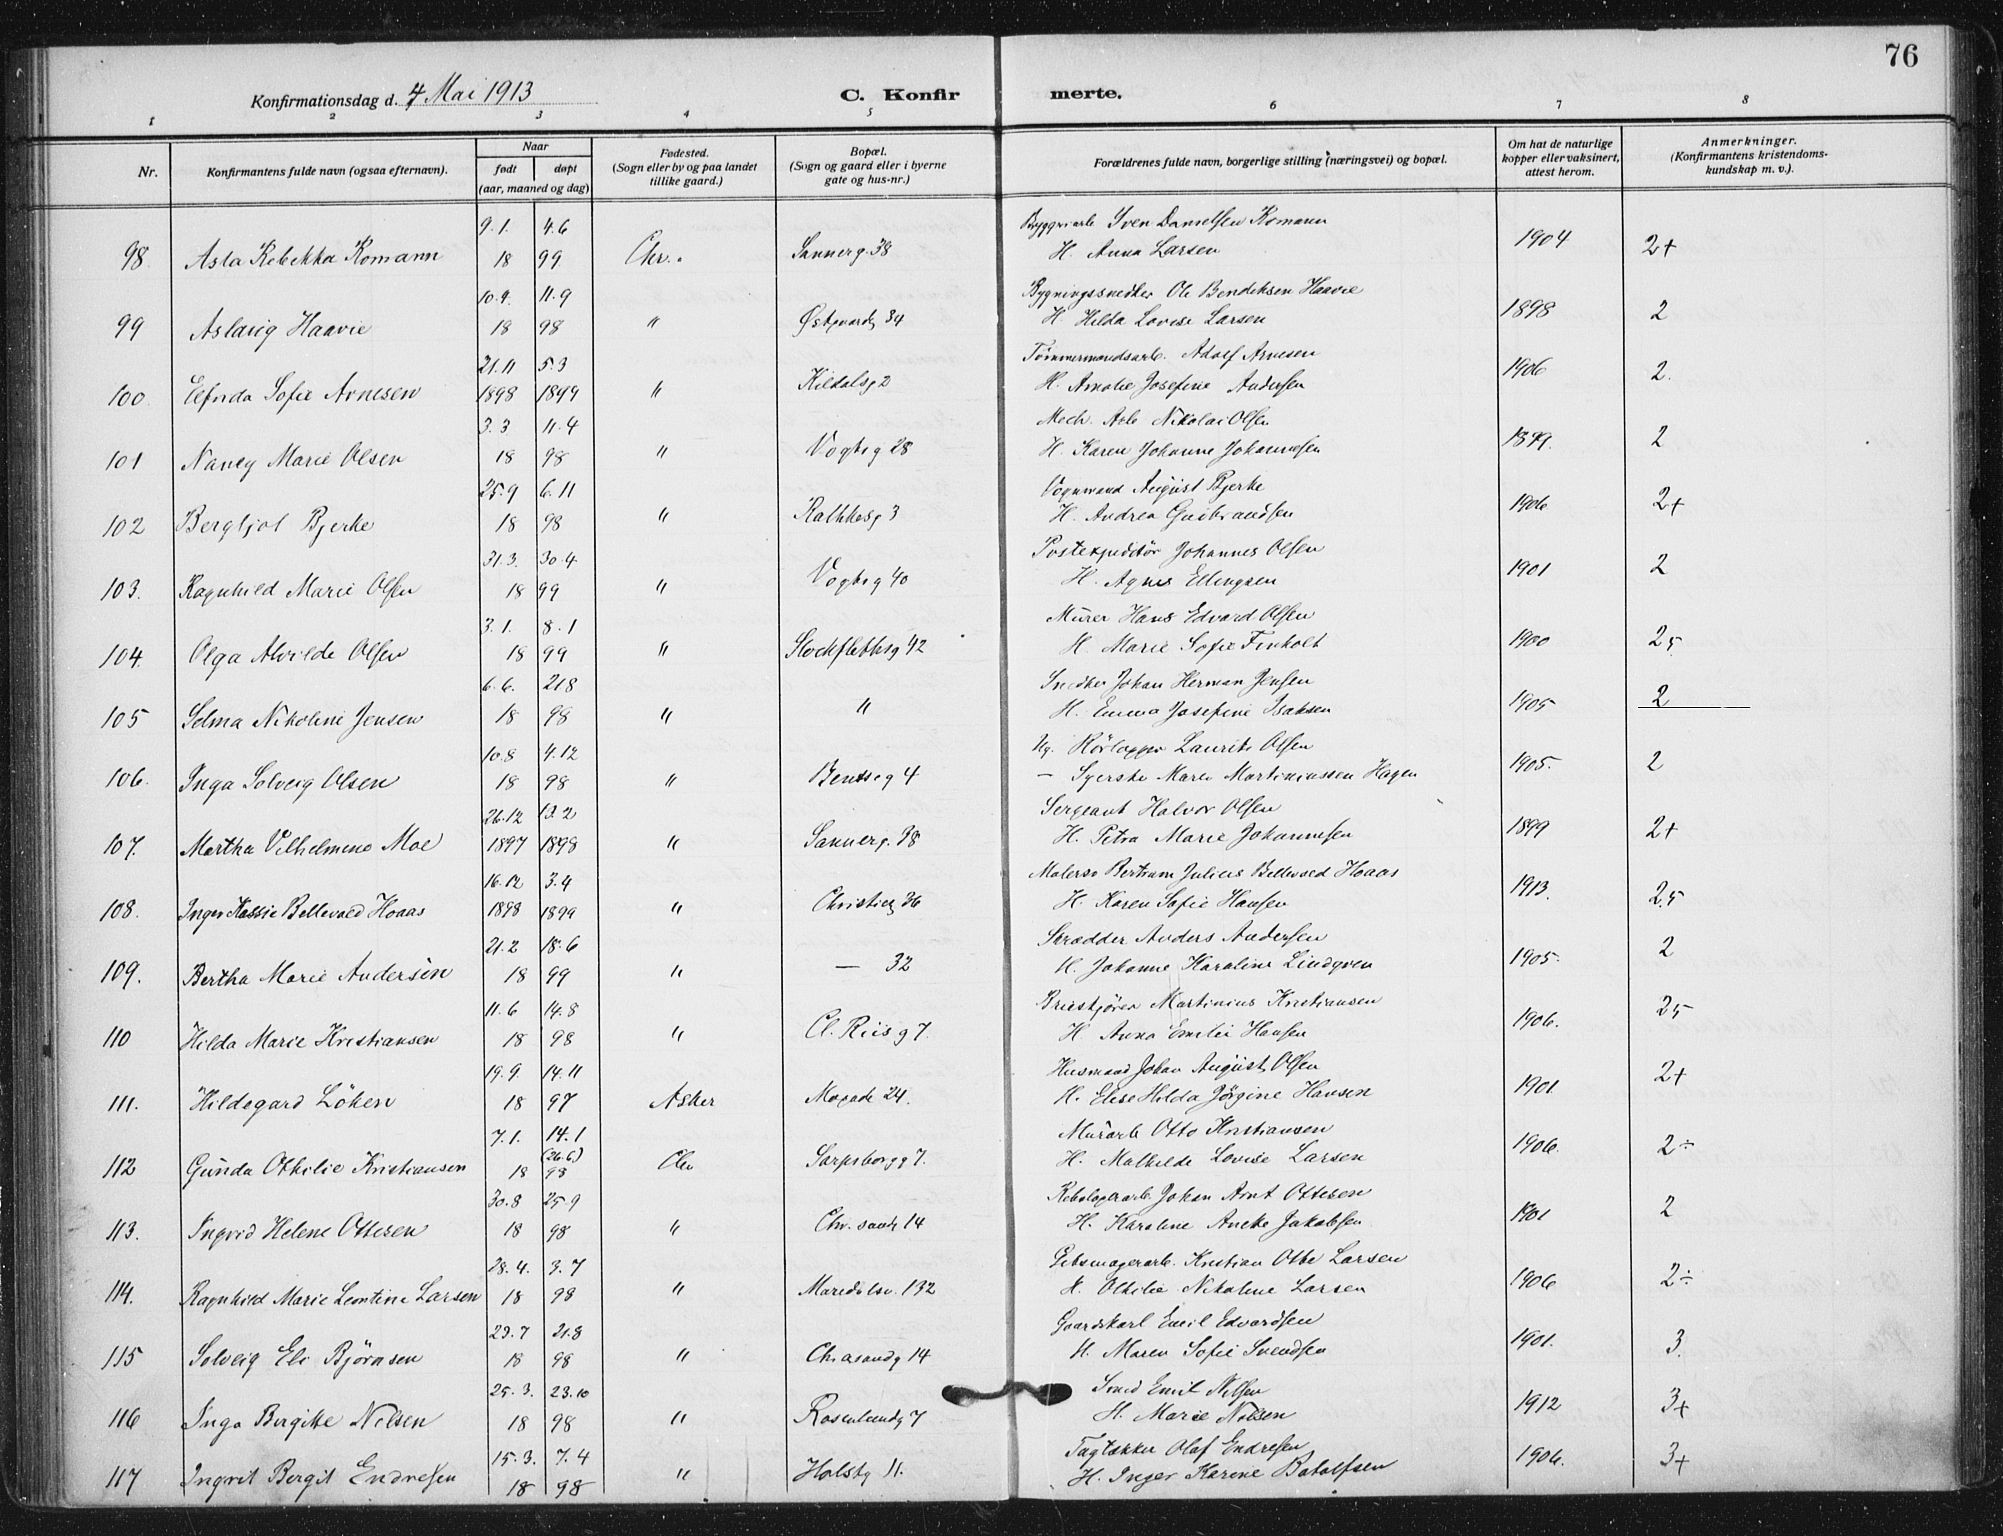 76
Konfirmationsdag d. 4 Mai 1913
C. Konfirmerte.
1 2 3 4 5 6 7 8
Nr.
Konfirmantens fulde navn (ogsaa efternavn).
Naar
født døpt
(aar, maaned og dag)
Fødested.
(Sogn eller by og paa landet
tillike gaard.)
Bopæl.
(Sogn og gaard eller i byerne
gate og hus-nr.)
Forældrenes fulde navn, borgerlige stilling (næringsvei) og bopæl.
Om hat de naturlige
kopper eller vaksinert,
attest herom.
Anmerkninger.
(Konfirmantens kristendoms-
kundskap m. v.).
9.1. 4.6 Danielsen Komann
98. Asta Rebekka Komann 18 99 Chr.. Sannerg. 38 H. Anna Larsen 1904 2+
10.9. 11.9 Bygningssnedker Ole Bendiksen Haavie
99 Aslaug Haavie 18 98 " 34 H. Hilda Lovise Larsen 1898 2
21.11 5.3 Tømmermandsarb. Adolf Arnesen
100 Elfrida Sofie Arnesen 1898 1899 " Kildalsg 2 H. Amalie Josefine Andersen 1906 2.
3.3 11.4 Mech. Arb Nikolai Olsen
101 Nancy Marie Olsen 18 98 " Vogtsg 28 H. Karen Johanne Johannesen 1899. 2
25.9 6.11 Vognmand August Bjerke
102 Bergljot Bjerke 18 98 " Rathkesg 3 H. Andrea Gulbrandsen 1906 2+
31.3. 30.4 Postexpeditør Johannes Olsen
103. Ragnhild Marie Olsen 18 99 " Vogtsg 40 H. Agnes Ellingsen 1901 2
3.1. 8.1 Murer Hans Edvard Olsen
104. Olga Alvilde Olsen 18 99 " Stockflethsg 42 H. Marie Sofie Finholt 1900 2,5
6.6. 21.8 Snedker Johan Herman Jensen
105 Selma Nikoline Jensen 18 98 " " H. Emma Josefine Isaksen 1905 2
10.8 4.12 Ug. Laurits Olsen
106. Inga Solveig Olsen 18 98 " Bentseg 4 – Syerske Maren Martiniussen Hagen 1905. 2
26.12 13.2 Sergeant Halvor Olsen
107. Martha Vilhelmine Moe 1897 1898 " Sannerg. 38 H. Petra Marie Johannesen 1899 2+
16.12 3.4 Malersv Bertram Julius Bellevold Hoaas
108. Inger Kassie Bellevold Hoaas 1898 1899 " Christieg 36 H. Karen Sofie Hansen 1913. 2,5
21.2 18.6 Skrædder Anders Andersen
109. Bertha Marie Andersen 18 99 " — 32 H. Johanne Karoline Lindgren 1905. 2
11.6 14.8 Martinius Kristiansen
110 Hilda Marie Kristiansen 18 98 " Cl. Riisg 7. H. Anna Emilie Hansen 1906. 2,5
19.9 14.11 Husmand Johan August Olsen
111. Hildegard Løken 18 97 Asker 24. H. Elise Hilda Jørgine Hansen 1901 2+
7.1. 14.1 Murarb Otto Kristiansen
(26.6)
112 Gunda Othilie Kristiansen 18 98 Chr Sarpsborgg 7. H. Mathilde Lovise Larsen 1906. 2÷
30.8 25.9 Johan Arnt Ottesen
113. Ingrid Helene Ottesen 18 98 " Chr. sandg 14 H. Karoline Aneke Jakobsen 1901 2
28.4. 3.7 Gibsmagerarb. Kristian Otto Larsen
114. Ragnhild Marie Leontine Larsen 18 98 " Maridalsv. 132 H. Othilie Nikoline Larsen 1906 2÷
29.7 21.8 Gaardskarl Emil Edvardsen
115 Solveig Eli Bjørnsen 18 98 " Chrasandg 14 H. Maren Sofie Svendsen 1901. 3.
25.3. 23.10 Smed Emil Nilsen
116 Inga Birgitte Nilsen 18 98 " Rosenlundg 7 H. Marie Nilsen 1912 3+
15.3. 7.4 Tagtækker Olaf Endresen
117 Ingrit Bergit Endresen 18 98 " Holstg 11. H. Inger Karine Botolfsen 1906. 3+